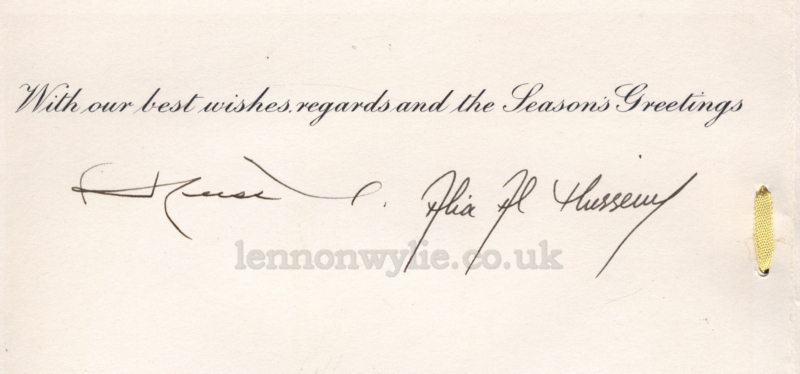 With our best wishes, regards and the Season's Greetings
Alia Al Hussein
lennonwylie.co.uk